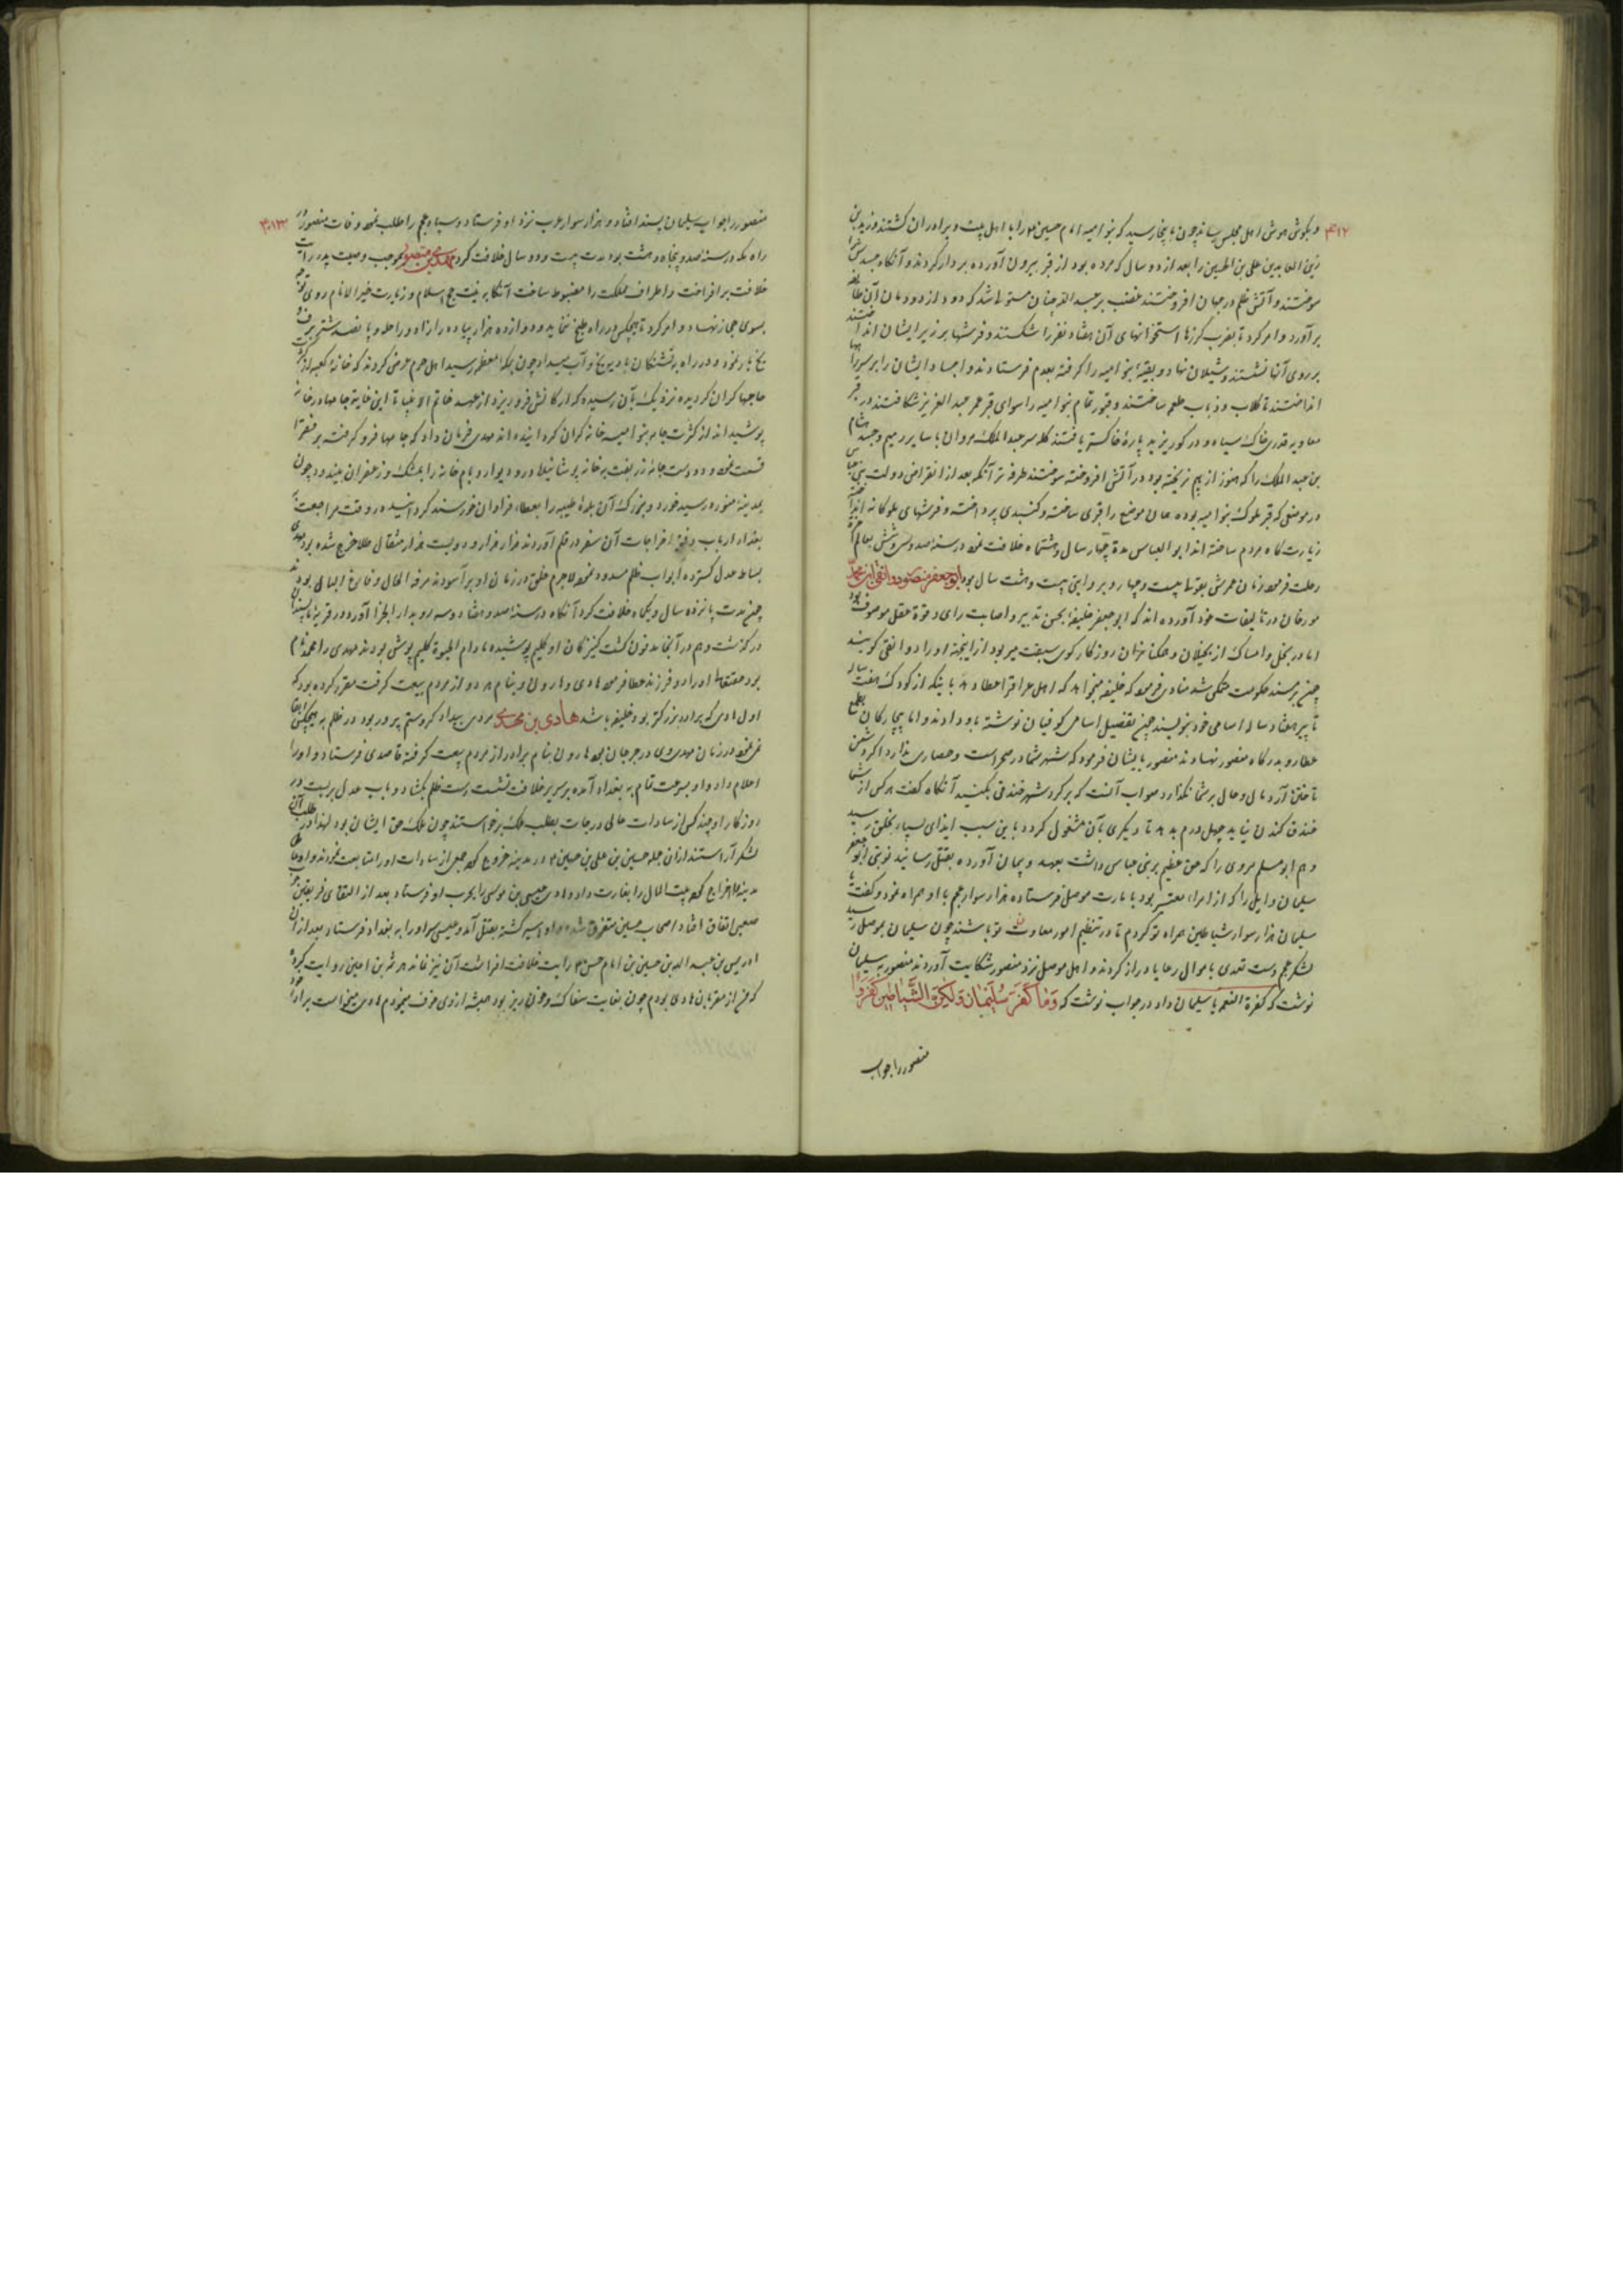 ۴۱۲
و بگوش هوش اهل مجلس رساند چون باینجا رسید که بنو امیه امام حسین را با اهل بیت و برادران کشتند و زید بن
زین العابدین علی بن الحسین را بعد از دو سال که مرده بود از قبر بیرون آورده بر دار کردند و آنگاه جسدش را
سوختند و آتش ظلم در جهان افروختند غضب بر عبد الله چنان مستولی شد که دود از دودمان آن طایفه
برآورد و امر کرد تا بضرب گرزها استخوانهای آن هفتاد نفر را شکستند و فرشها بر زبر ایشان انداختند
بر روی آنها نشستند و شیلان نهاد و بقیه بنو امیه را گرفته بعدم فرستادند و اجساد ایشان را بر سر راهها
انداختند تا کلاب و ذباب طعمه ساختند و قبور تمام بنو امیه را سوای قبر عمر عبد العزیز شکافتند در قبر
معاویه قدری خاک سیاه و در گور یزید پاره خاکستر یافتند کله سر عبد الملک مروان با سایر رمیم و جسد هشام
بن عبد الملک را که هنوز از هم نریخته بود در آتش افروخته سوختند طرفه تر آنکه بعد از انقراض دولت بنی عباس
در موضعی که قبر ملوک بنو امیه بوده همان موضع را قبری ساخته و گنبدی پرداخته و فرشهای ملوکانه انداخته
زیارت گاه مردم ساخته اند ابو العباس مدة چهار سال و هشت ماه خلافت نمود در سنه صد و سی و شش بعالم آخرة
رحلت فرمود زمان عمرش بقولی بیست و چهار و بروایتی بیست و هشت سال بود ابو جعفر منصور دوانقی ابن محمد
مورخان در تالیفات خود آورده اند که ابو جعفر خلیفه بحسن تدبیر و اصابت رای و قوة عقل موصوف بود
اما در بخل و امساک از بخیلان و ممسکان روزگار گوی سبقت میربود از اینجهة او را دوانقی گویند
چون بر مسند حکومت متمکن شد منادی فرمود که خلیفه میخواهد که اهل عراق را عطا دهد باید که از کودک هفت ساله
تا پیر هفتاد ساله اسامی خود بنویسند چون تفصیل اسامی کوفیان نوشته باو دادند و اما بیچارگان بطمع
عطا رو بدرگاه منصور نهادند منصور بایشان فرمود که شهر شما در صحراست و حصاری ندارد اگر دشمن
تاختن آرد مال و حال بر شما نگذارد صواب آنست که بر گرد شهر خندقی بکنید آنگاه گفت هر کس از شما
خندق کندن نیاید چهل درم بدهد تا دیگری بآن مشغول گردد باین سبب ایذای بسیار بخلق رسید
و هم ابو مسلم مروی را که حق عظیم بر بنی عباس داشت بعهد و پیمان آورده بقتل رسانید نوبتی ابو جعفر
سلیمان وایلی را که از امراء معتبر بود بامارت موصل فرستاده هزار سوار عجم با او همراه نمود و گفت
سلیمان هزار سوار شیاطین همراه تو کردم تا در تنظیم امور معاون تو باشند چون سلیمان بموصل رسید
لشکر عجم دست تعدی باموال رعایا دراز کردند و اهل موصل نزد منصور شکایت آوردند منصور به سلیمان
نوشت که کفرة النعمه یا سلیمان و او در جواب نوشت که وَمَا كَفَرَ سُلَيْمَانُ وَلَكِنَّ الشَّيَاطِينَ كَفَرُوا
منصور را جواب
۴۱۳
منصور را جواب سلیمان پسند افتاد و هزار سوار عرب نزد او فرستاد و سپاه عجم را طلب نمود وفات منصور در
راه مکه در سنه صد و پنجاه و هشت بود مدت بیست و دو سال خلافت کرد مهدی بن منصور بموجب وصیت پدر رایت
خلافت برافراخت و اطراف مملکت را مضبوط ساخت آنگاه به نیت حج اسلام و زیارت خیر الانام روی توجه
بسوی حجاز نهاد و امر کرد تا هیچکس در راه طبخ ننماید و دوازده هزار پیاده را زاد و راحله و پانصد شتر برف و
یخ بار نمود و در راه بتشنگان بادیه یخ و آب میداد چون بمکه معظمه رسید اهل حرم عرض کردند که خانه کعبه از کثرت
جامها گران گردیده نزدیک بآن رسیده که ارکانش فرو ریزد از عهد خاتم انبیا تا این غایة جامها در خانه
پوشیده اند از کثرت جامه بنو امیه خانه گران گردانیده اند مهدی فرمان داد که جامها فرو گرفته بر فقرا
قسمت نمود و دو دست جامه زربفت بر خانه پوشانید و در و دیوار و بام خانه را بمشک و زعفران بیندود چون
بمدینه منوره رسید خورد و بزرگ آن بلده طیبه را بعطاء فراوان خورسند گردانیده در وقت مراجعت
بغداد ارباب دفتر اخراجات آن سفر در قلم آوردند هزار هزار و دویست هزار مثقال طلا خرج شده بود مهدی
بساط عدل گسترده ابواب ظلم مسدود نمود لاجرم خلق در زمان او برآسودند مرفه الحال و فارغ البال بودند
چون مدت پانزده سال و یکماه خلافت کرد آنگاه در سنه صد و هفتاد و سه رو بدار الجزا آورد و در قریه
درگذشت و هم در آنجا مدفون گشت کنیزکان او گلیم پوشیده مادام الحیوة گلیم پوش بودند مهدی را محمد نام
بود حقتعالی او را دو فرزند عطا فرمود هادی و هارون و بنام هر دو از مردم بیعت گرفت مقرر کرده بود که
اول هادی که برادر بزرگتر بود خلیفه باشد هادی بن مهدی مردی بیدادگر و ستم پرور بود در ظلم به هیچکس ابقا
نمی نمود در زمان مهدی وی در جرجان بود هارون بنام برادر از مردم بیعت گرفته قاصدی فرستاد و او را
اعلام داد و او بسرعت تمام به بغداد آمده بر سریر خلافت نشست دست ظلم بگشاد و باب عدل بربست در
روزگار او چند کس از سادات عالی درجات بطلب ملک برخواستند چون ملک حق ایشان بود لهذا در طلب آن
لشکر آراستند از آن جمله حسین بن علی بن حسین در مدینه خروج کرد جمعی از سادات او را متابعت نمودند و او
مدینه اخراج کرد بیت المال را بغارت داد و هادی عیسی بن موسی را بحرب او فرستاد بعد از التقای فریقین
صعبی اتفاق افتاد اصحاب حسین متفرق شده و او اسیر گشته بقتل آمد و عیسی سر او را به بغداد فرستاد بعد از آن
ادریس بن عبد الله بن حسین بن امام حسن رایت خلافت افراشت آن نیز نماند هرثمه بن اعین روایت کرده
که من از مقربان هادی بودم چون بغایت سفاک و خون ریز بود همیشه از وی خوف میخوردم هادی میخواست برادر